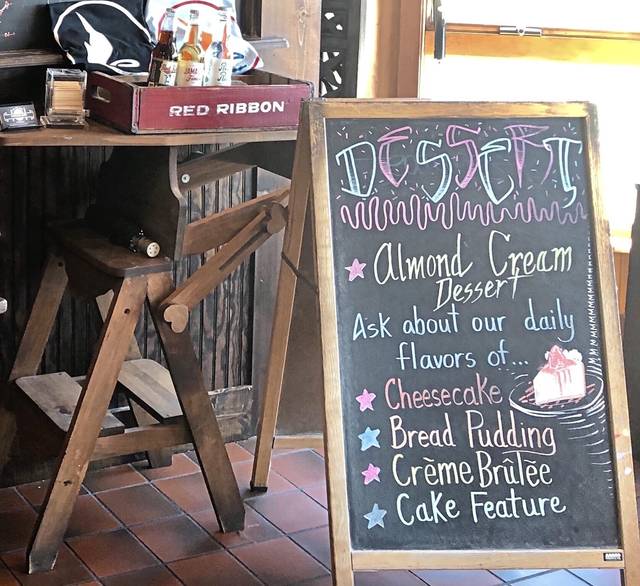 RED RIBBON
DESSERT
Almond Cream
Dessert
Ask about our daily
flavors of...
Cheesecake
Bread Pudding
Crème Brûlée
Cake Feature